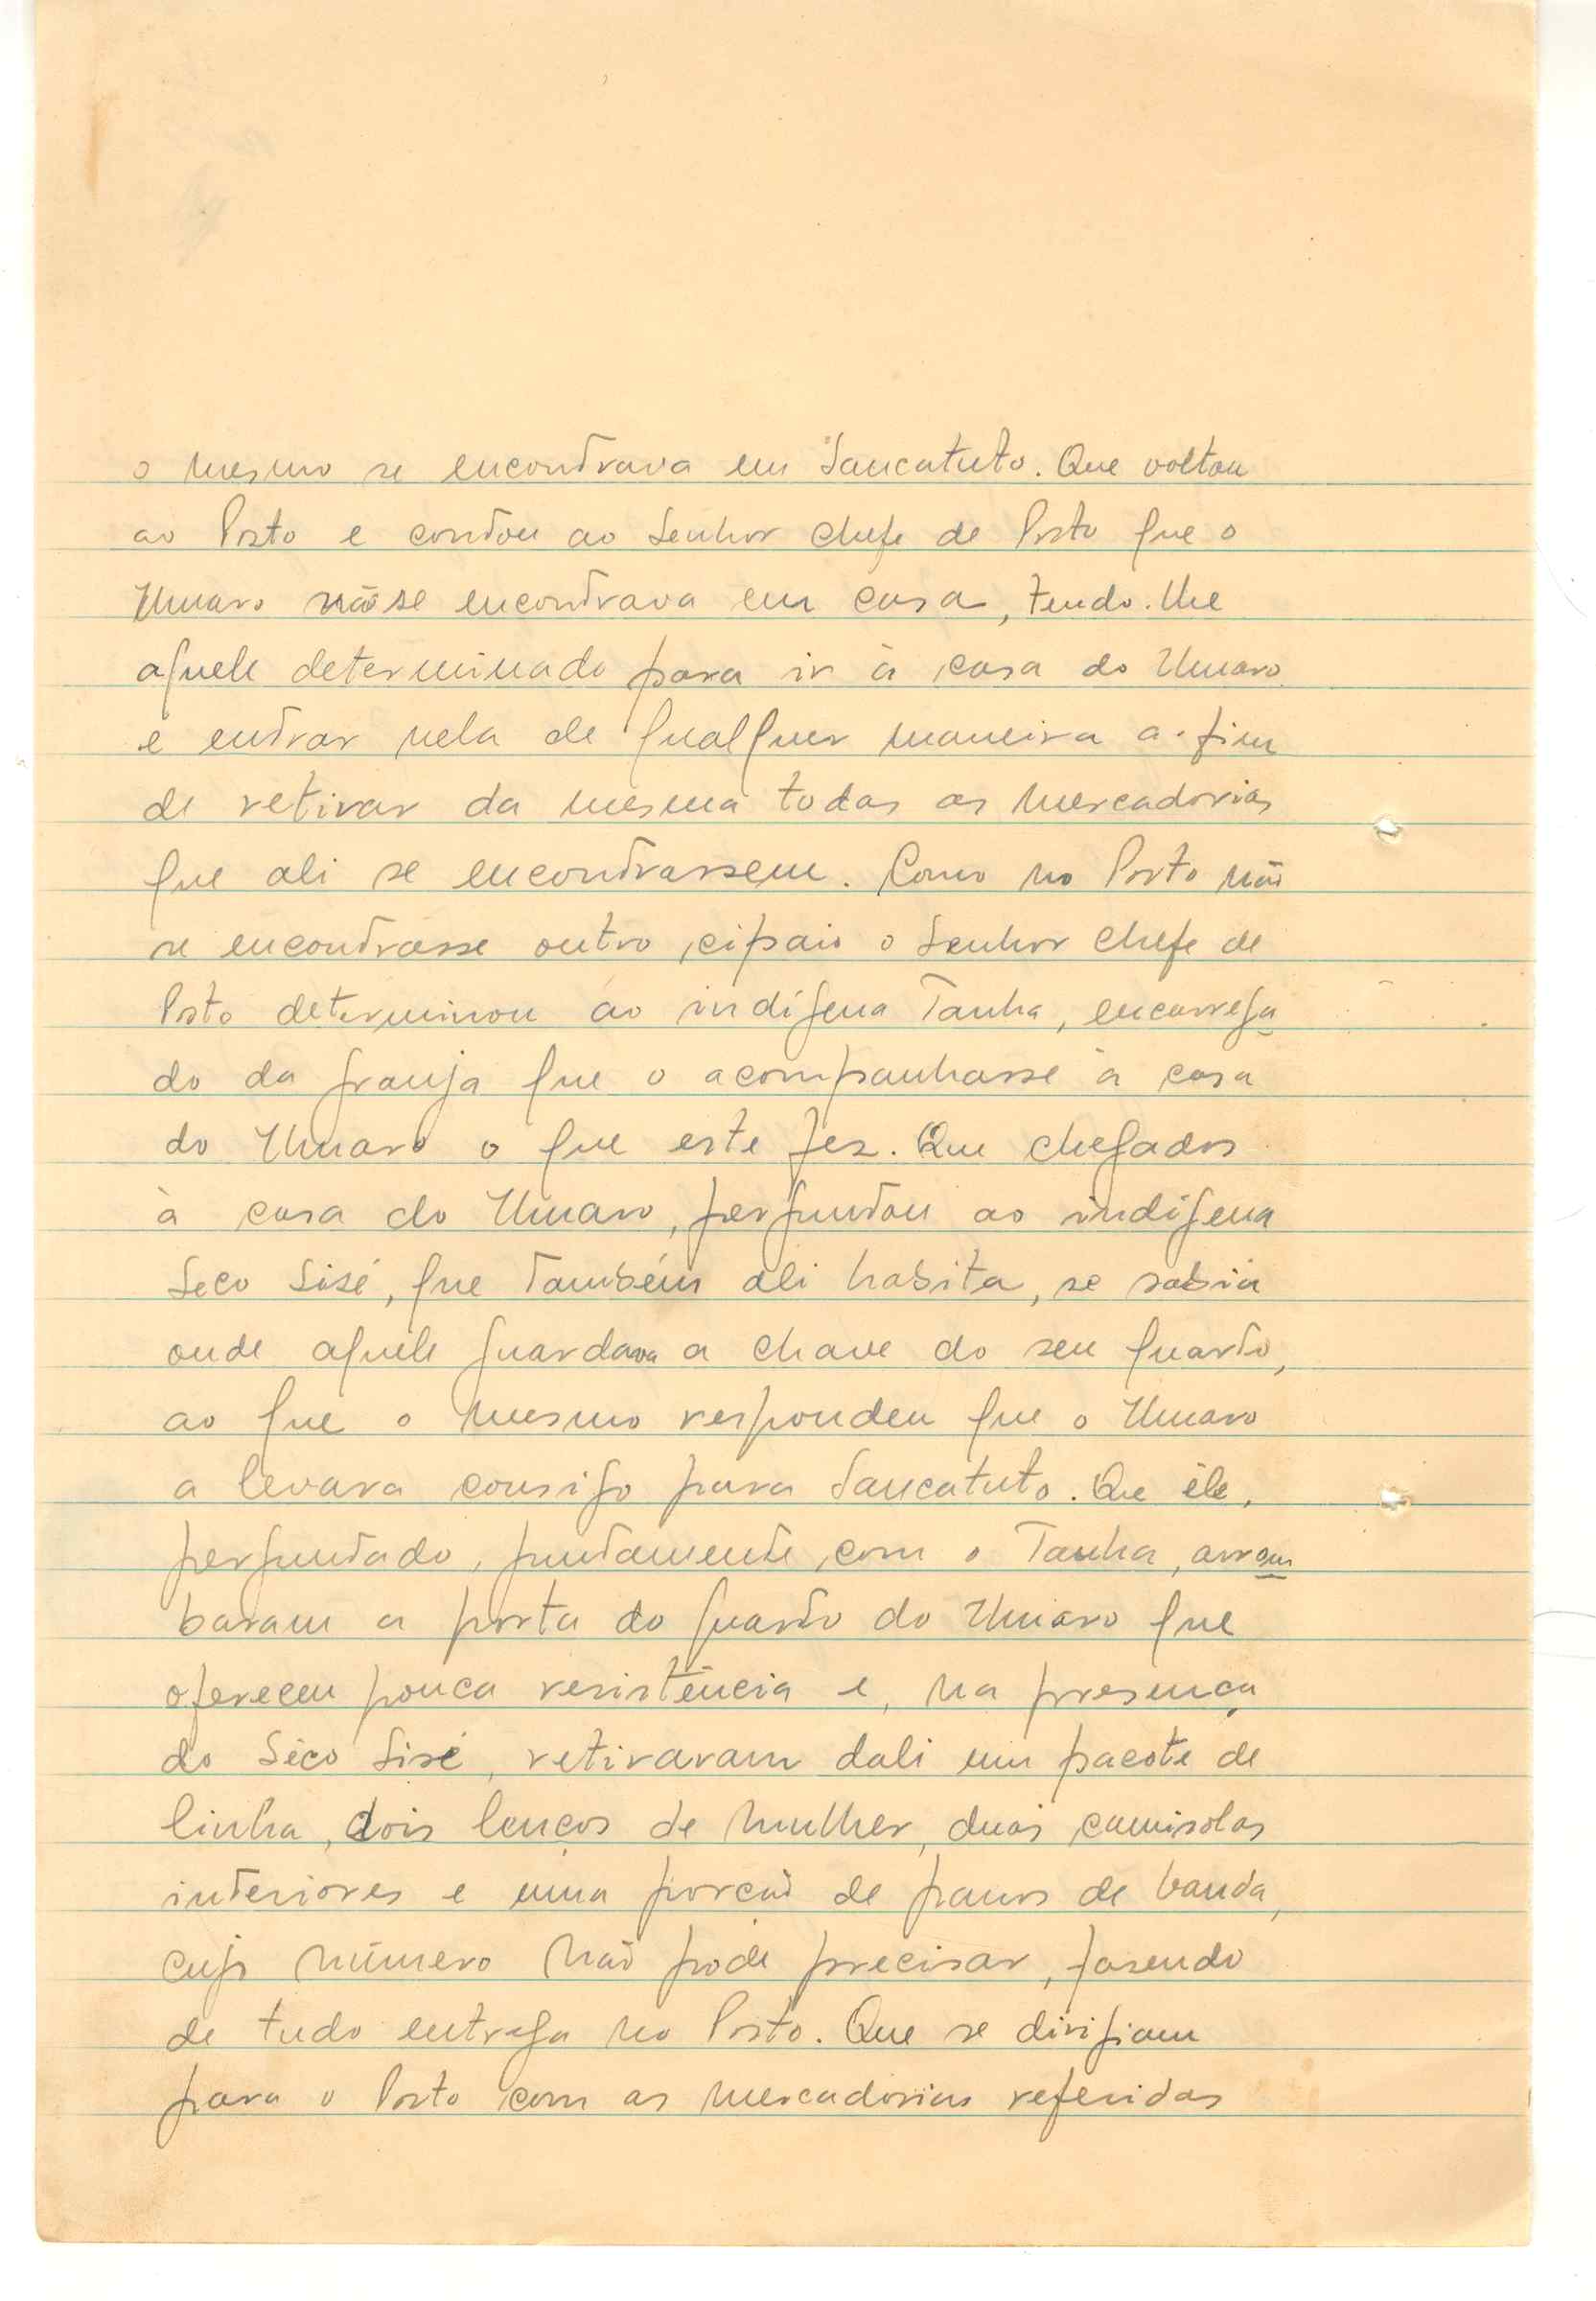 o mesmo se encontrava em Sancatuto. Que voltou
ao Posto e contou ao Senhor Chefe de Posto que o
Umaro não se encontrava em casa, tendo-lhe
aquele determinado para ir à casa do Umaro
e entrar nela de qualquer maneira a-fim
de retirar da mesma todas as mercadorias
que ali se encontrassem. Como no Posto não
se encontrasse outro cipaio o Senhor Chefe de
Posto determinou ao indígena Tanha, encarrega
do da granja que o acompanhasse à casa
do Umaro o que este fez. Que chegados
à casa do Umaro, perguntou ao indígena
Seco Sisé, que também ali habita, se sabia
onde aquele guardava a chave do seu quarto,
ao que o mesmo respondeu que o Umaro
a levara consigo para Sancatuto. Que êle,
perguntado, juntamente com o Tanha, arrom
baram a porta do quarto do Umaro que
ofereceu pouca resistência e, na presença
do Séco Sisé, retiraram dali um pacote de
linha, dois lenços de mulher, duas camisolas
interiores e uma porção de panos de banda,
cujo número não pode precisar, fasendo
de tudo entrega no Posto. Que se dirigiam
para o Posto com as mercadorias referidas